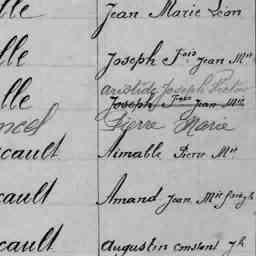 lle Jean Marie Léon
lle Joseph Fois Jean Mie
aristide Joseph Victor
lle Joseph Fois Jean Mie
ncel Pierre Marie
cault Aimable Pierre Mie
cault Amand Jean Mie
cault Augustin Constant